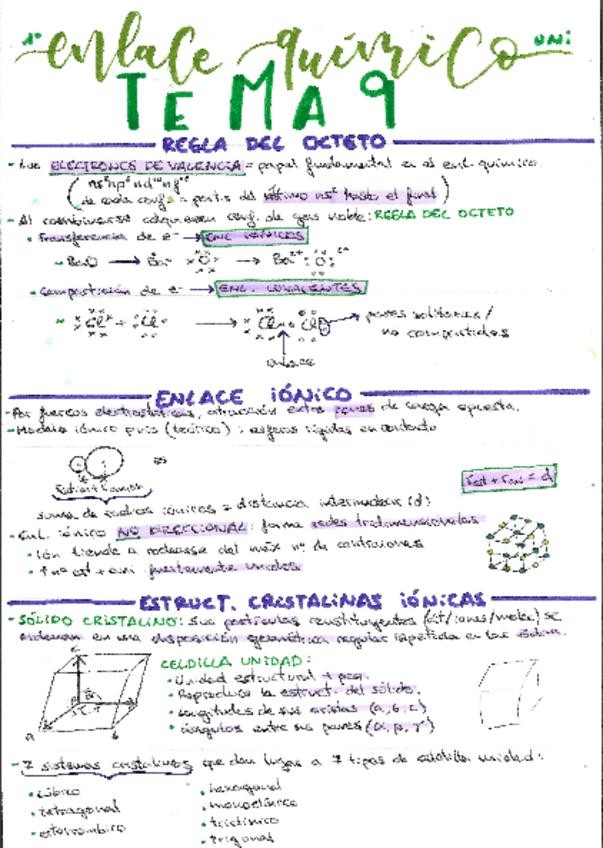 1º enlace químico uni
TEMA 9
REGLA DEL OCTETO
- Los ELECTRONES DE VALENCIA = papel fundamental en el enl. químico
de cada config. a partir del último ns² hasta el final
- Al combinarse adquieren conf. de gas noble: REGLA DEL OCTETO
• Transferencia de e⁻ → ENL. IÓNICOS
• Compartición de e⁻ → ENL. COVALENTES
pares solitarios /
no compartidos
enlace
ENLACE IÓNICO
- Por fuerzas electrostáticas, atracción entre iones de carga opuesta.
- Modelo iónico puro (teórico): esferas rígidas en contacto
rcat + rani = d
suma de radios iónicos = distancia internuclear (d)
- Enl. iónico NO DIRECCIONAL: forma redes tridimensionales
• Ión tiende a rodearse del máx nº de contraiones
• fuertemente unidos
ESTRUCT. CRISTALINAS IÓNICAS
- SÓLIDO CRISTALINO: Sus partículas constituyentes (át/iones/moléc) se
ordenan en una disposición geométrica regular repetida en las
CELDILLA UNIDAD:
• Unidad estructural + peq.
• Reproduce la estruct. del sólido.
• Longitudes de sus aristas (a, b, c)
• Ángulos entre sus (α, β, γ)
- 7 sistemas cristalinos que dan lugar a 7 tipos de celdilla unidad:
• Cúbico
• tetragonal
• ortorrómbico
• hexagonal
• monoclínico
• triclínico
• trigonal